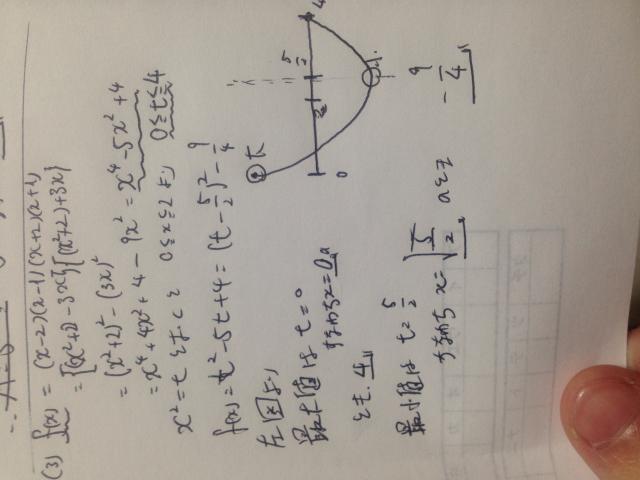 (3) f(x) = (x-2)(x-1)(x+2)(x+1)
= {(x²+2)-3x}{(x²+2)+3x}
= (x²+2)² - (3x)²
= x⁴+4x²+4-9x² = x⁴-5x²+4
x²=t とおくと 0≦x≦2より 0≦t≦4
f(x) = t²-5t+4 = (t-5/2)²-9/4
左図より
最大値は t=0
すなわち x=0の
とき. 4
最小値は t=5/2
すなわち x=√5/2 のとき -9/4
大
小
0
2
5/2
4